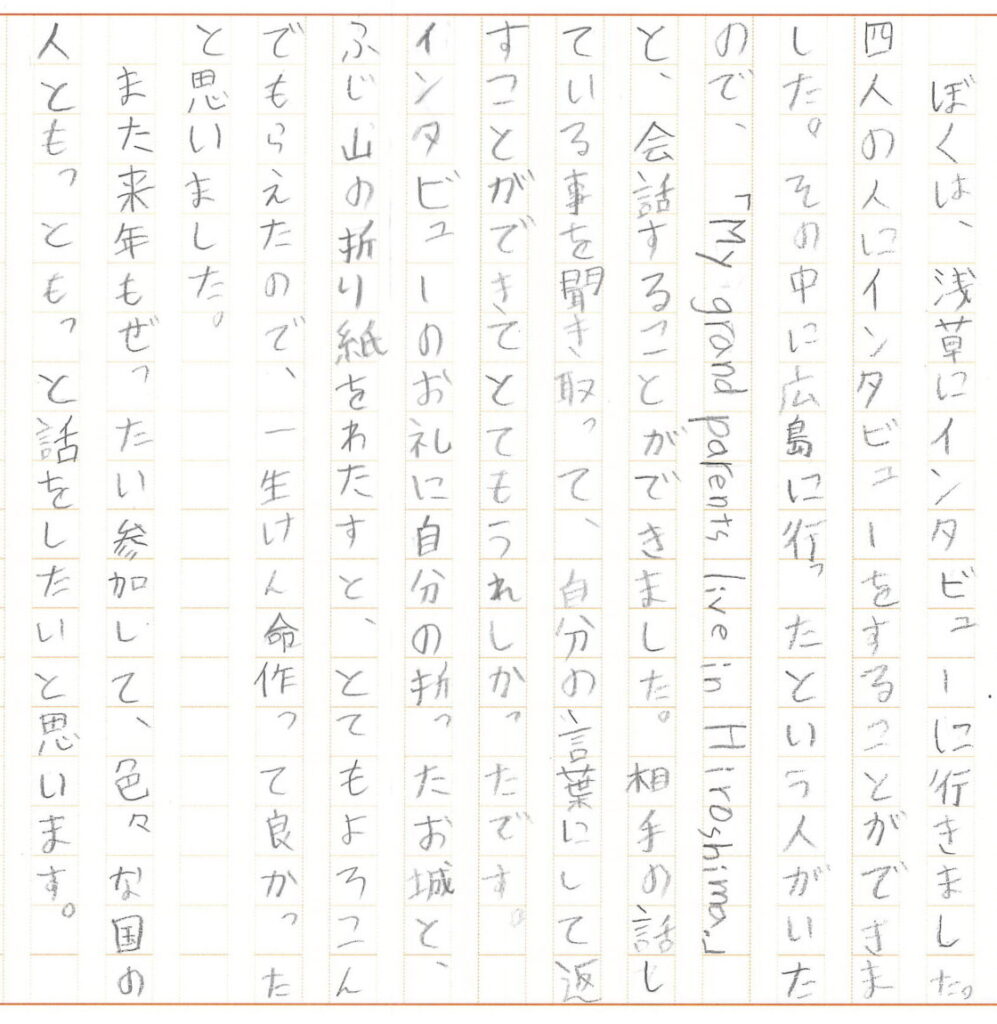 ぼくは、浅草にインタビューに行きました。
四人の人にインタビューをすることができま
した。その中に広島に行ったという人がいた
ので、「My grand parents live in Hiroshima.」
と、会話することができました。相手の話し
ている事を聞き取って、自分の言葉にして返
すことができてとてもうれしかったです。
インタビューのお礼に自分の折ったお城と、
ふじ山の折り紙をわたすと、とてもよろこん
でもらえたので、一生けん命作って良かった
と思いました。
また来年もぜったい参加して、色々な国の
人ともっともっと話をしたいと思います。